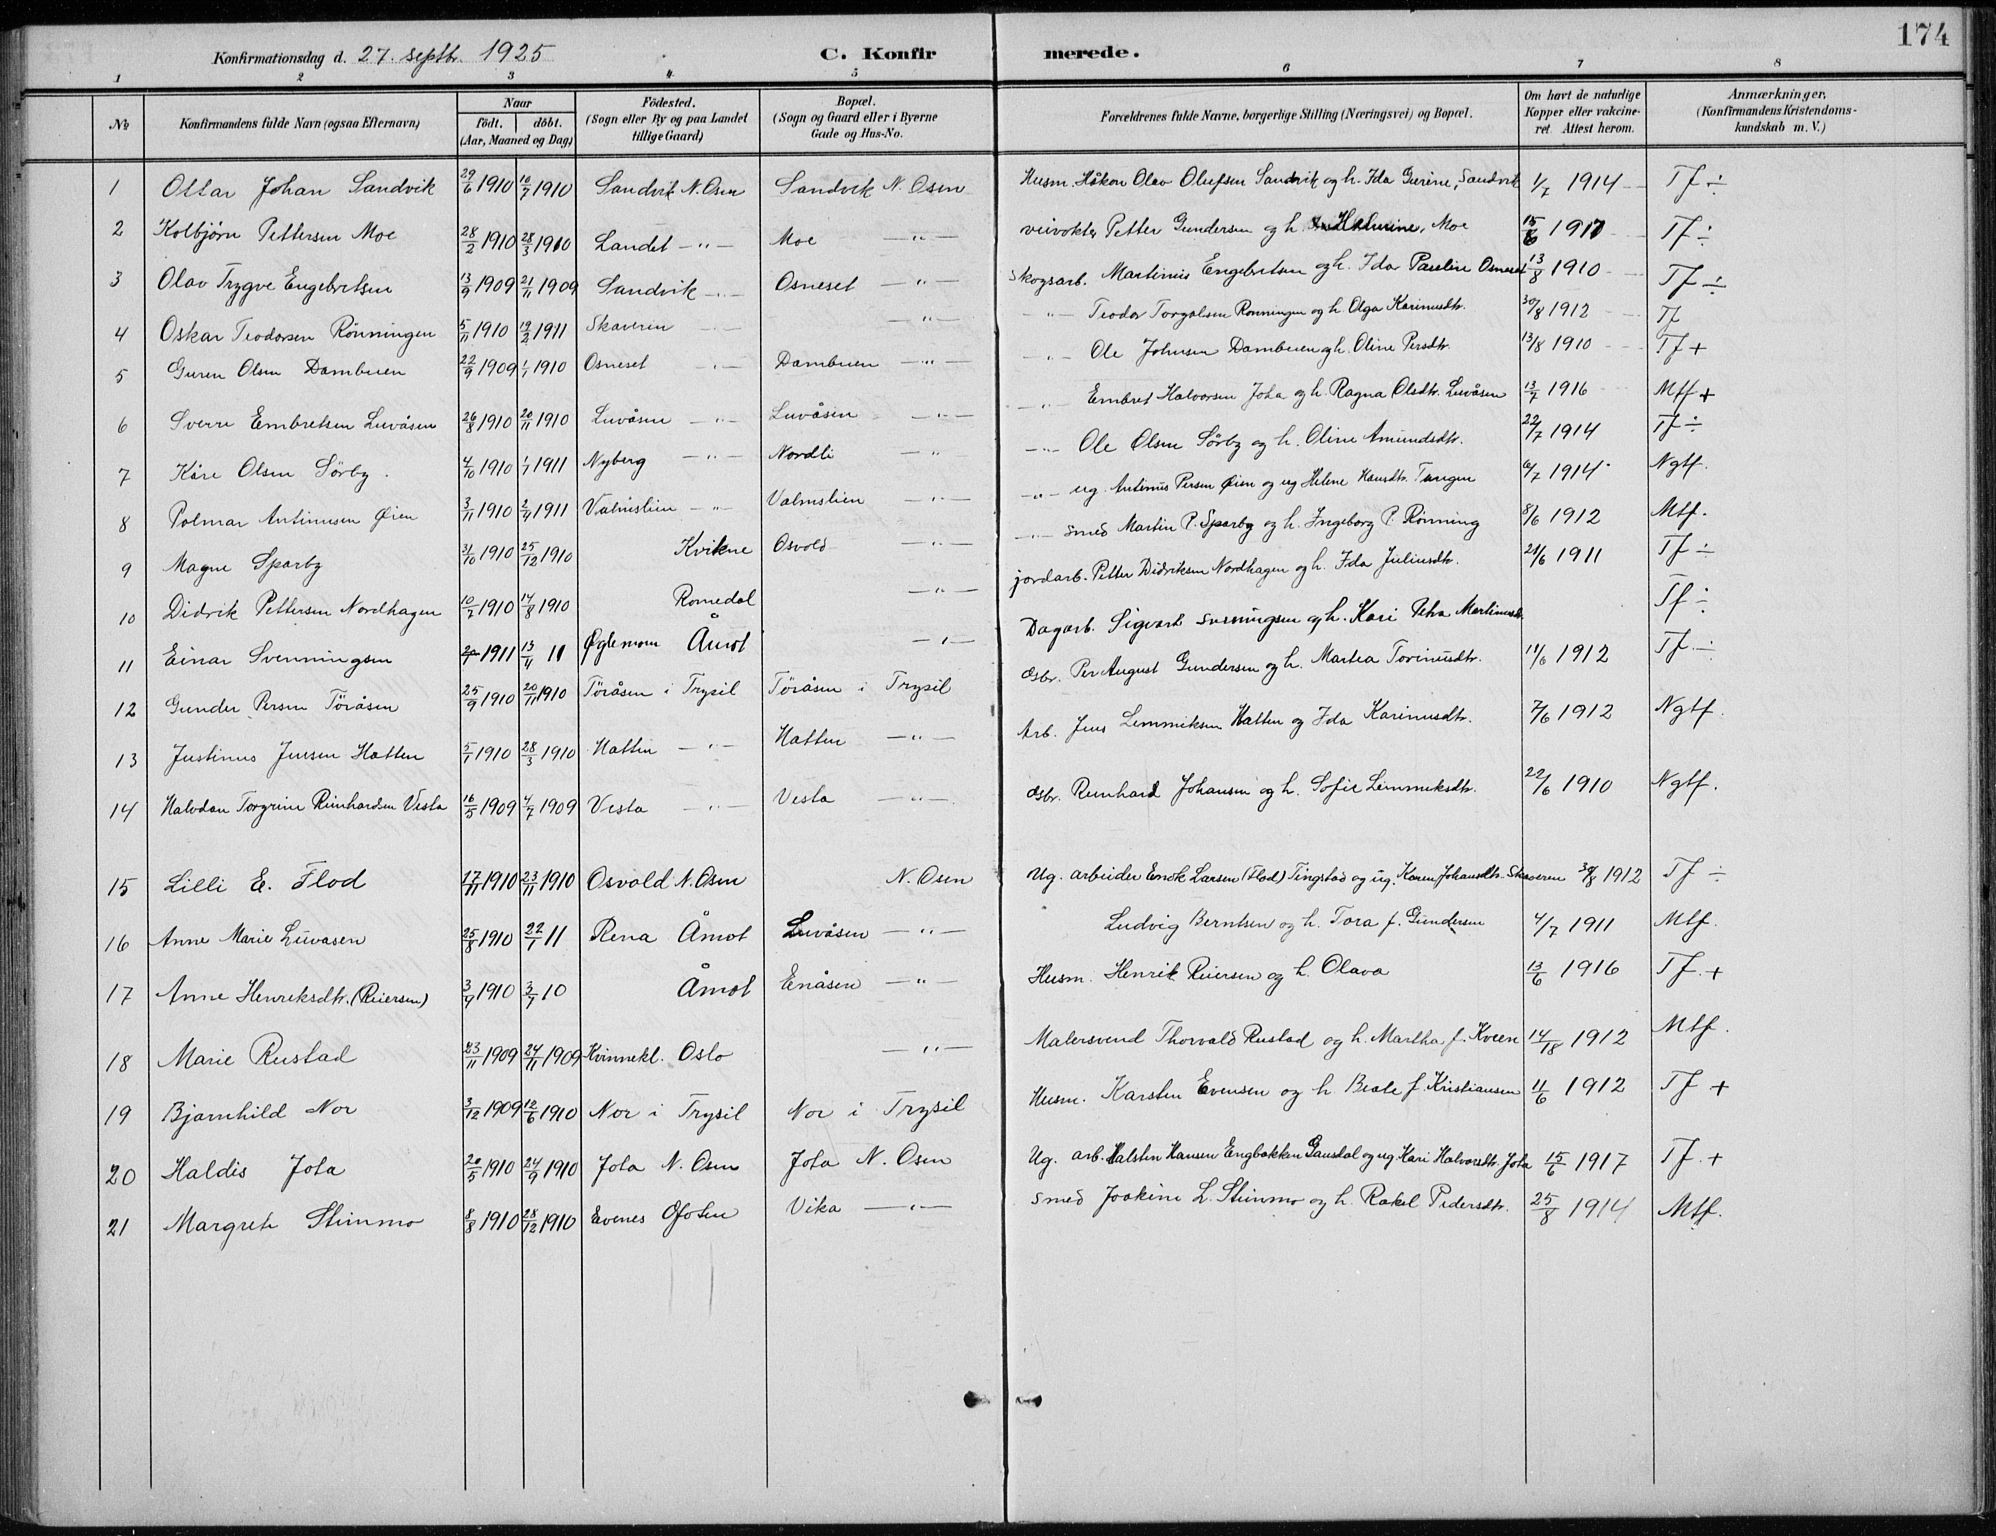 174
Konfirmationsdag d. 27. septbr. 1925 C. Konfirmerede.
1 2 3 4 5 6 7 8
No Konfirmandens fulde Navn (ogsaa Efternavn)
Naar født. døbt. (Aar, Maaned og Dag)
Fødested. (Sogn eller By og paa Landet tillige Gaard)
Bopæl. (Sogn og Gaard eller i Byerne Gade og Hus-No.
Forældrenes fulde Navne, borgerlige Stilling (Næringsvei) og Bopæl.
Om havt de naturlige Kopper eller vakcineret. Attest herom.
Anmærkninger, (Konfirmandens Kristendomskundskab m. V.)
1 Ottar Johan Sandvik 29/6 1910 10/7 1910 Sandvik N. Osen Sandvik N. Osen Husm. Håkon Olav Olufsen Sandvik og h. Ida Gurine, Sandvik 1/7 1914 Tf ÷
2 Kolbjørn Pettersen Moe 28/2 1910 28/3 1910 Landet — " — Moe — " — veivokter Petter Gundersen og h. Moe 15/6 1917 Tf ÷
3 Olav Trygve Engebretsen 13/9 1909 21/11 1909 Sandvik — " — Osneset — " — Skogsarb. Martinus Engebretsen og h. Ida Pauline Osneset 13/8 1910 Tf ÷
4 Oskar Teodorsen Rønningen 5/11 1910 19/2 1911 Skaveren — " — — " — — " — Teodor Torgalsen Rønningen og h. Olga Karinusdtr. 30/8 1912 Tf
5 Guren Olsen Dambuen 22/9 1909 1/1 1910 Osneset — " — Dambuen — " — — " — Ole Johnsen Dambuen og h. Oline Persdtr. 13/8 1910 Tf +
6 Sverre Embretsen Luvåsen 26/8 1910 20/11 1910 Luvåsen — " — Luvåsen — " — — " — Embret Halvorsen Jota og h. Ragna Olsdtr. Luvåsen 13/7 1916 Mtf +
7 Kåre Olsen Sørby. 4/10 1910 1/1 1911 Nyberg — " — Nordli — " — " — Ole Olsen Sørby og h. Oline Amundsdtr. 22/7 1914 Tf ÷
8 Polmar Antinusen Øien 3/11 1910 2/4 1911 Valmslien — " — Valmslien — " — — " — ug. Antinus Persen Øien og ug Helene Hansdtr. Tangen 6/7 1914 Ngtf.
9 Magne Sparby 31/10 1910 25/12 1910 Kvikne Osvold — " — — " — Smed Martin P. Sparby og h. Ingeborg P. Rønning 8/6 1912 Mtf.
10 Didrik Pettersen Nordhagen 10/7 1910 14/8 1910 Romedal — " — jordarb. Petter Didriksen Nordhagen og h. Ida Juliusdtr. 21/6 1911 Tf ÷
11 Einar Svenningsen 1911 13/4 11 Øglemoen Åmot — " — Dagarb. Sigvart Svenningsen og h. Kari Petra Martinusdtr. Tf ÷
12 Gunder Persen Tøråsen 25/9 1910 20/11 1910 Tøråsen i Trysil Tøråsen i Trysil Gsbr. Per August Gundersen og h. Martea Torinusdtr. 11/6 1912 Tf. ÷
13 Justinus Jensen Hatten 5/1 1910 28/3 1910 Hatten — " — Hatten — " — Arb. Jens Lemmiksen Hatten og Ida Karinusdtr. 7/6 1912 Ngtf.
14 Halvdan Torgrim Reinhardsen Vesta 16/5 1909 4/7 1909 Vesta — " — Vesta — " — Gsbr. Reinhard Johansen og h. Sofie Lemmiksdtr. 22/6 1910 Ngtf.
15 Lilli E. Flod 17/11 1910 23/11 1910 Osvold N. Osen N. Osen Ug. arbeider Enok Larsen (Flod) Tingstad og ug. Karen Johansdtr. Skaveren 30/8 1912 Tf ÷
16 Anne Marie Luvasen 25/8 1910 22/1 11 Rena Åmot Luvåsen — " — Ludvig Berntsen og h. Tora f. Gundersen 4/7 1911 Mtf.
17 Anne Henriksdtr. (Reiersen) 3/9 1910 3/7 10 Åmot Enåsen — " — Husm. Henrik Reiersen og h. Olava 13/6 1916 Tf. +
18 Marie Rustad 23/11 1909 24/11 1909 Kvinnekl. Oslo — " — Malersvend Thorvald Rustad og h. Martha f. Kveen 14/18 1912 Mtf.
19 Bjarnhild Nor 3/12 1909 12/6 1910 Nor i Trysil Nor i Trysil Husm. Karsten Evensen og h Beate f. Kristiansen 11/6 1912 Tf +
20 Haldis Jota 20/5 1910 24/9 1910 Jota N. Osen Jota N. Osen Ug. arb. Halsten Hansen Engbakken Gausdal og ug Kari Halvorsdtr. Jota 15/6 1917 Tf. +
21 Margreth Stenmo 8/8 1910 28/12 1910 Evenes Ofoten Vika — " — Smed Joakim L. Stenmo og h. Rakel Pedersdtr. 25/8 1914 Mtf.